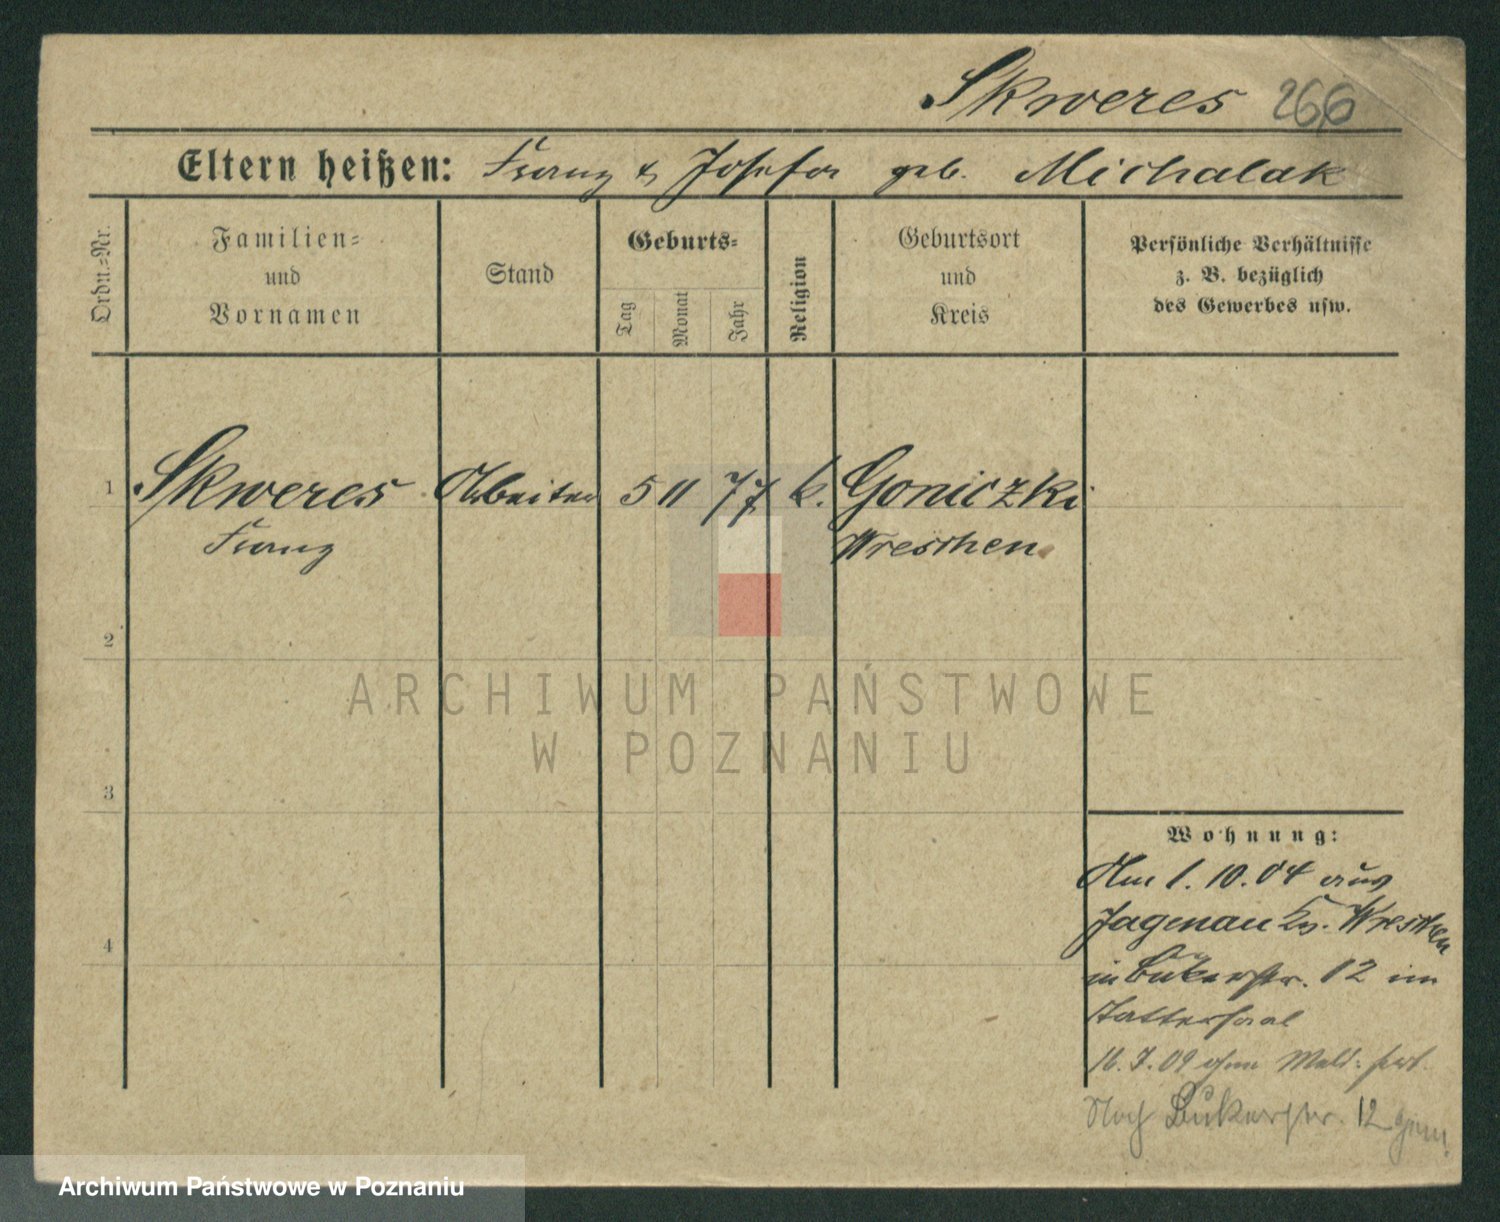 Skweres 266
Eltern heißen: Franz & Josefa geb. Michalak
Ordn.-Nr.
Familien-
und
Vornamen
Stand
Geburts-
Tag
Monat
Jahr
Religion
Geburtsort
und
Kreis
Persönliche Verhältnisse
z. B. bezüglich
des Gewerbes usw.
1 Skweres Arbeiter 5 11 77 k. Goniczki
Franz Wreschen
2
ARCHIWUM PAŃSTWOWE
W POZNANIU
3
Wohnung:
Am 1. 10. 04 aus
Jagenau Kr. Wreschen
in Bukerstr. 12 im
Tattersaal
4
16. 7. 09 ohne Meld:
Noch Bukerstr. 12
Archiwum Państwowe w Poznaniu